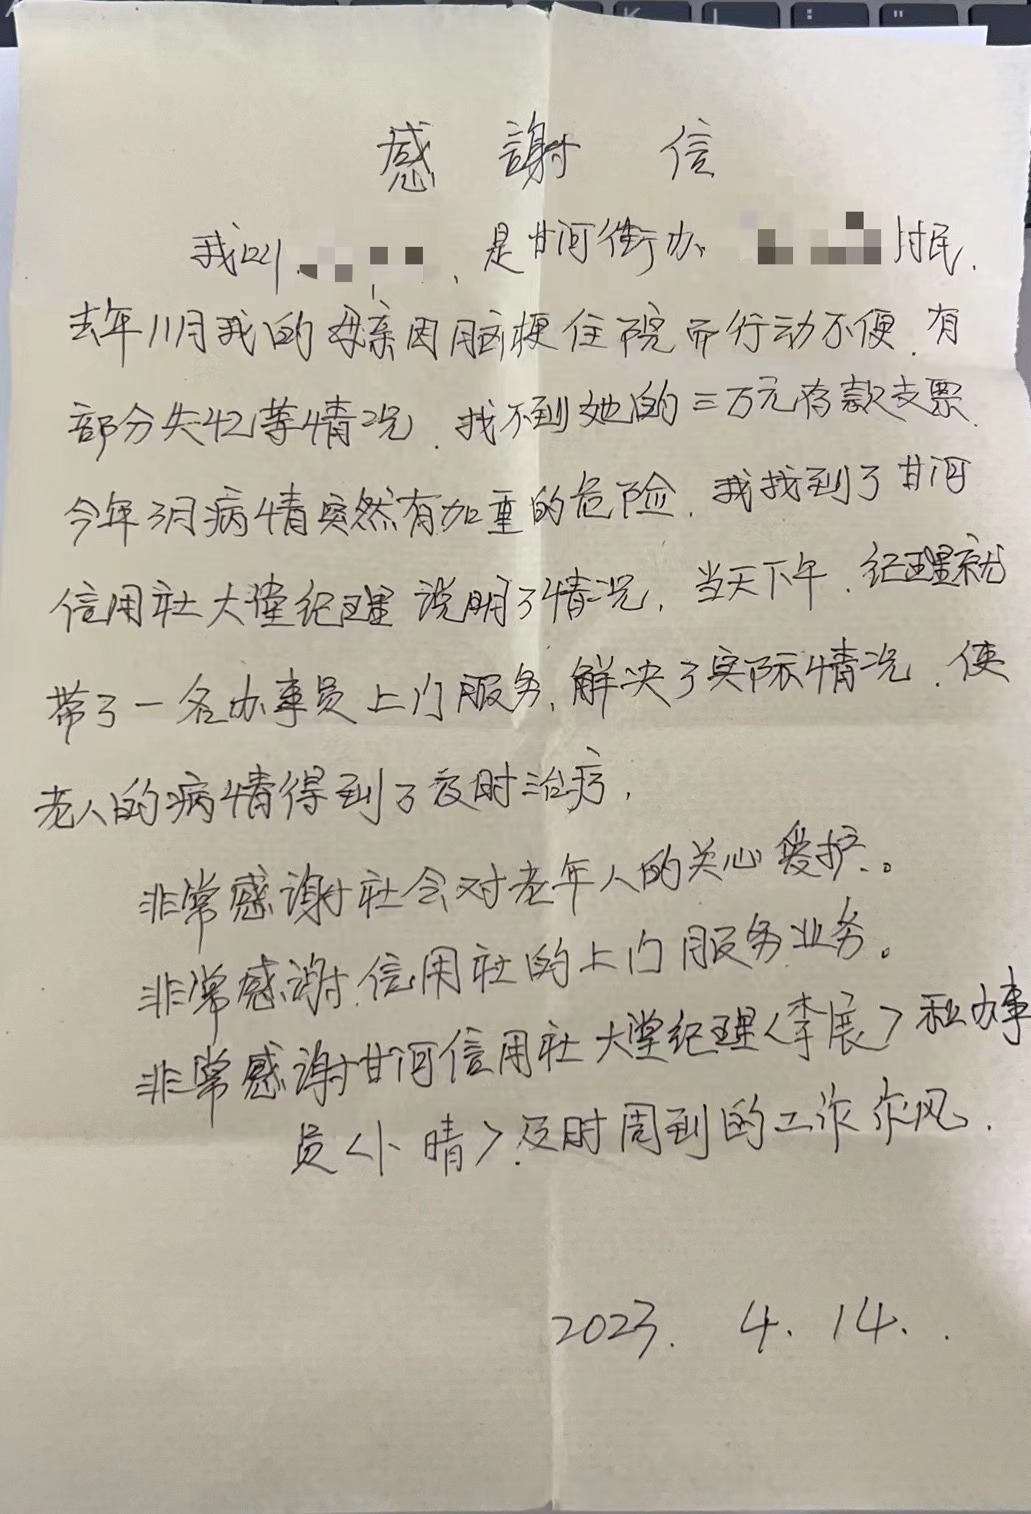 感謝信
我叫 , 是甘河街办 村民.
去年11月我的母亲因脑梗住院而行动不便. 有
部分失忆等情况. 找不到她的三万元存款支票.
今年3月病情突然有加重的危险. 我找到了甘河
信用社大堂经理说明了情况. 当天下午. 经理就
带了一名办事员上门服务. 解决了实际情况. 使
老人的病情得到了及时治疗.
非常感谢社会对老年人的关心爱护。
非常感谢信用社的上门服务业务。
非常感谢甘河信用社大堂经理<李展>和办事
员<小晴>及时周到的工作作风.
2023. 4. 14.